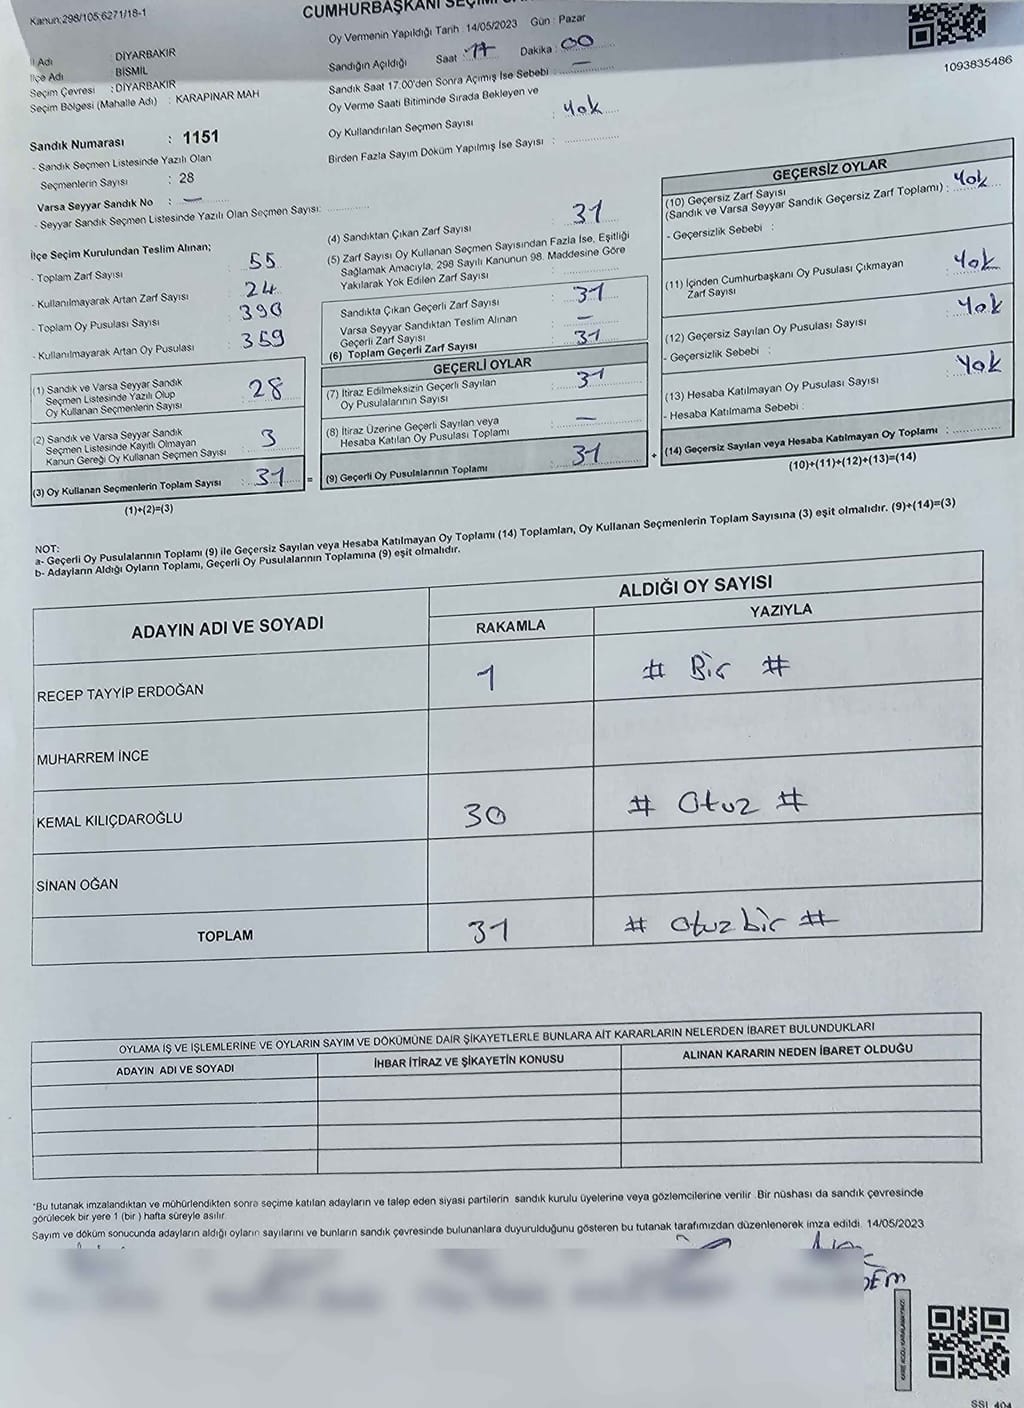 Kanun:298/105;6271/18-1
CUMHURBAŞKANI SEÇİMİ
Oy Vermenin Yapıldığı Tarih : 14/05/2023 Gün : Pazar
İl Adı : DİYARBAKIR
İlçe Adı : BİSMİL
Seçim Çevresi : DİYARBAKIR
Seçim Bölgesi (Mahalle Adı) : KARAPINAR MAH
Sandığın Açıldığı Saat : 17 Dakika : 00
Sandık Saat 17.00'den Sonra Açımış İse Sebebi : —
Oy Verme Saati Bitiminde Sırada Bekleyen ve
Oy Kullandırılan Seçmen Sayısı : Yok
Birden Fazla Sayım Döküm Yapılmış İse Sayısı :
1093835486
Sandık Numarası : 1151
- Sandık Seçmen Listesinde Yazılı Olan
Seçmenlerin Sayısı : 28
Varsa Seyyar Sandık No : —
- Seyyar Sandık Seçmen Listesinde Yazılı Olan Seçmen Sayısı:
İlçe Seçim Kurulundan Teslim Alınan;
- Toplam Zarf Sayısı : 55
- Kullanılmayarak Artan Zarf Sayısı : 24
- Toplam Oy Pusulası Sayısı : 390
- Kullanılmayarak Artan Oy Pusulası : 359
(1) Sandık ve Varsa Seyyar Sandık
Seçmen Listesinde Yazılı Olup
Oy Kullanan Seçmenlerin Sayısı : 28
(2) Sandık ve Varsa Seyyar Sandık
Seçmen Listesinde Kayıtlı Olmayan
Kanun Gereği Oy Kullanan Seçmen Sayısı : 3
(3) Oy Kullanan Seçmenlerin Toplam Sayısı : 31
(1)+(2)=(3)
(4) Sandıktan Çıkan Zarf Sayısı : 31
(5) Zarf Sayısı Oy Kullanan Seçmen Sayısından Fazla İse, Eşitliği
Sağlamak Amacıyla, 298 Sayılı Kanunun 98. Maddesine Göre
Yakılarak Yok Edilen Zarf Sayısı :
Sandıkta Çıkan Geçerli Zarf Sayısı : 31
Varsa Seyyar Sandıktan Teslim Alınan
Geçerli Zarf Sayısı : —
(6) Toplam Geçerli Zarf Sayısı : 31
GEÇERLİ OYLAR
(7) İtiraz Edilmeksizin Geçerli Sayılan
Oy Pusulalarının Sayısı : 31
(8) İtiraz Üzerine Geçerli Sayılan veya
Hesaba Katılan Oy Pusulası Toplamı : —
= (9) Geçerli Oy Pusulalarının Toplamı : 31
GEÇERSİZ OYLAR
(10) Geçersiz Zarf Sayısı
(Sandık ve Varsa Seyyar Sandık Geçersiz Zarf Toplamı) : Yok
- Geçersizlik Sebebi :
(11) İçinden Cumhurbaşkanı Oy Pusulası Çıkmayan
Zarf Sayısı : Yok
(12) Geçersiz Sayılan Oy Pusulası Sayısı : Yok
- Geçersizlik Sebebi :
(13) Hesaba Katılmayan Oy Pusulası Sayısı : Yok
- Hesaba Katılmama Sebebi :
+ (14) Geçersiz Sayılan veya Hesaba Katılmayan Oy Toplamı :
(10)+(11)+(12)+(13)=(14)
NOT:
a- Geçerli Oy Pusulalarının Toplamı (9) ile Geçersiz Sayılan veya Hesaba Katılmayan Oy Toplamı (14) Toplamları, Oy Kullanan Seçmenlerin Toplam Sayısına (3) eşit olmalıdır. (9)+(14)=(3)
b- Adayların Aldığı Oyların Toplamı, Geçerli Oy Pusulalarının Toplamına (9) eşit olmalıdır.
ADAYIN ADI VE SOYADI
ALDIĞI OY SAYISI
RAKAMLA YAZIYLA
RECEP TAYYİP ERDOĞAN 1 # Bir #
MUHARREM İNCE
KEMAL KILIÇDAROĞLU 30 # Otuz #
SİNAN OĞAN
TOPLAM 31 # Otuz bir #
OYLAMA İŞ VE İŞLEMLERİNE VE OYLARIN SAYIM VE DÖKÜMÜNE DAİR ŞİKAYETLERLE BUNLARA AİT KARARLARIN NELERDEN İBARET BULUNDUKLARI
ADAYIN ADI VE SOYADI İHBAR İTİRAZ VE ŞİKAYETİN KONUSU ALINAN KARARIN NEDEN İBARET OLDUĞU
*Bu tutanak imzalandıktan ve mühürlendikten sonra seçime katılan adayların ve talep eden siyasi partilerin sandık kurulu üyelerine veya gözlemcilerine verilir. Bir nüshası da sandık çevresinde
görülecek bir yere 1 (bir) hafta süreyle asılır.
Sayım ve döküm sonucunda adayların aldığı oyların sayılarını ve bunların sandık çevresinde bulunanlara duyurulduğunu gösteren bu tutanak tarafımızdan düzenlenerek imza edildi. 14/05/2023
KARE KODU KARALAMAYINIZ!